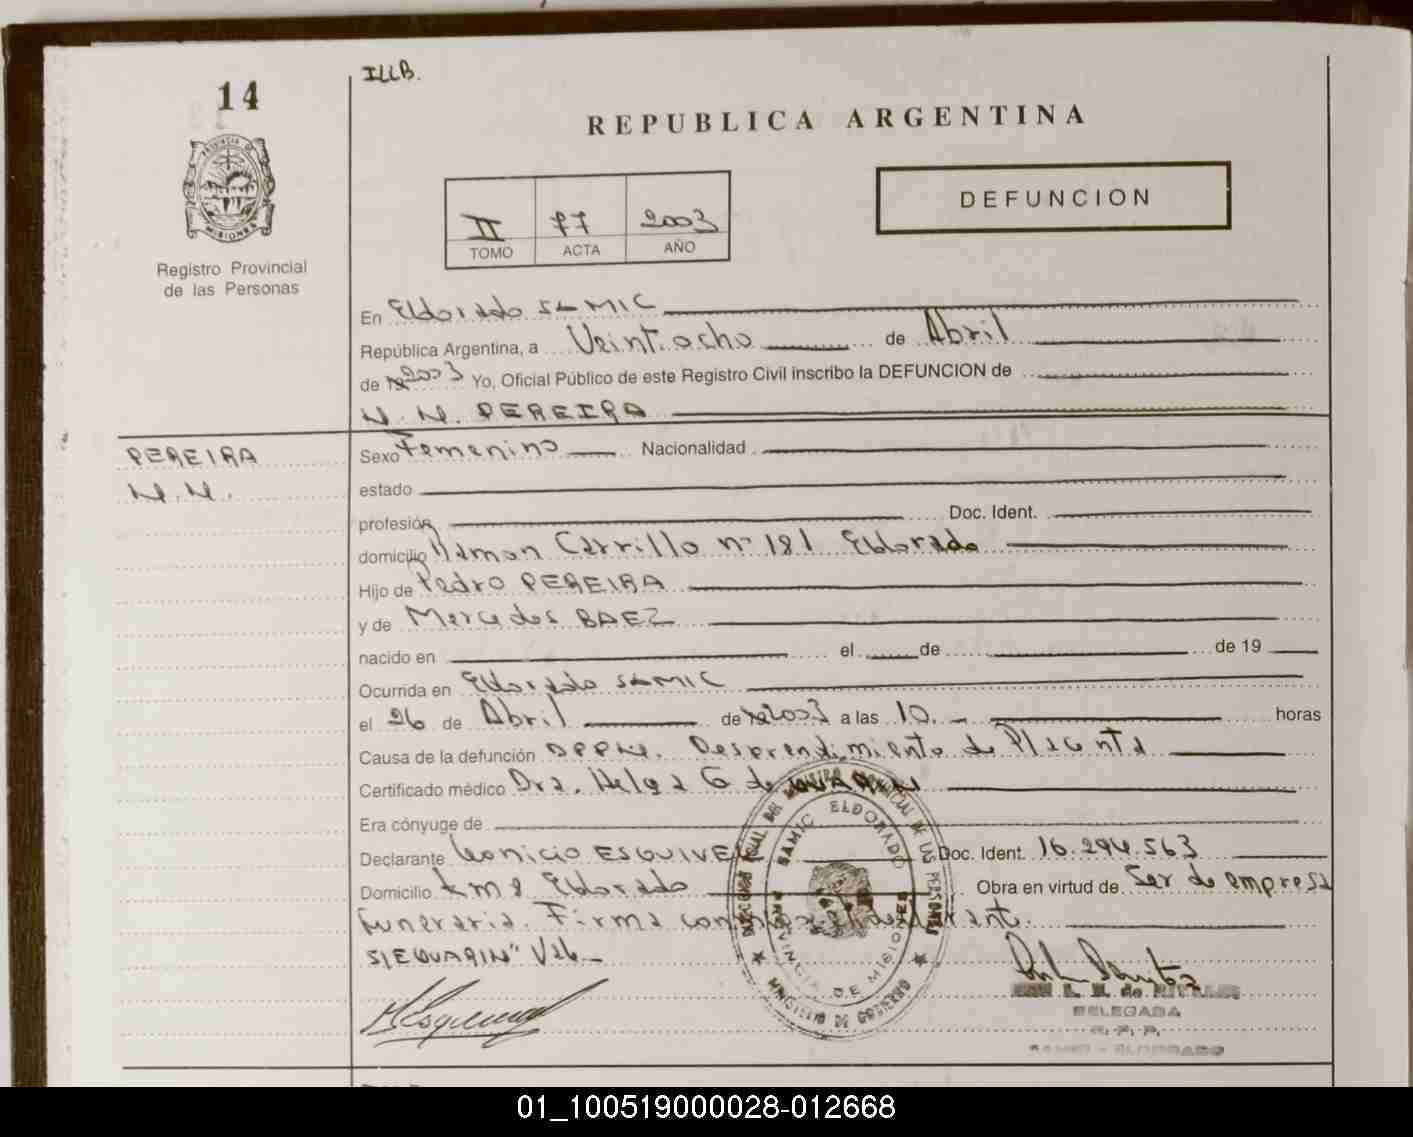 14
ILLB.
REPUBLICA ARGENTINA
PROVINCIA DE
MISIONES
Registro Provincial
de las Personas
II 77 2003
TOMO ACTA AÑO
DEFUNCION
En Eldorado SAMIC
República Argentina, a Veintiocho de Abril
de 2003 Yo, Oficial Público de este Registro Civil inscribo la DEFUNCION de
N. N. PEREIRA
PEREIRA
N. N.
Sexo Femenino Nacionalidad
estado
profesión Doc. Ident.
domicilio Ramon Carrillo nº 181 Eldorado
Hijo de Pedro PEREIRA
y de Mercedes BAEZ
nacido en el de de 19
Ocurrida en Eldorado SAMIC
el 26 de Abril de 2003 a las 10. horas
Causa de la defunción DPPNI. Desprendimiento de Placenta
Certificado médico Dra. Helga G de
Era cónyuge de
Declarante Leonicio ESQUIVEL Doc. Ident. 16.294.563
Domicilio km 8 Eldorado Obra en virtud de Ser de empresa
funeraria. Firma conmigo el declarante.
S/EQUARIN" Vale
SAMIC ELDORADO
PROVINCIA DE MISIONES
DELEGADA
R. P. P.
SAMIC - ELDORADO
01_100519000028-012668